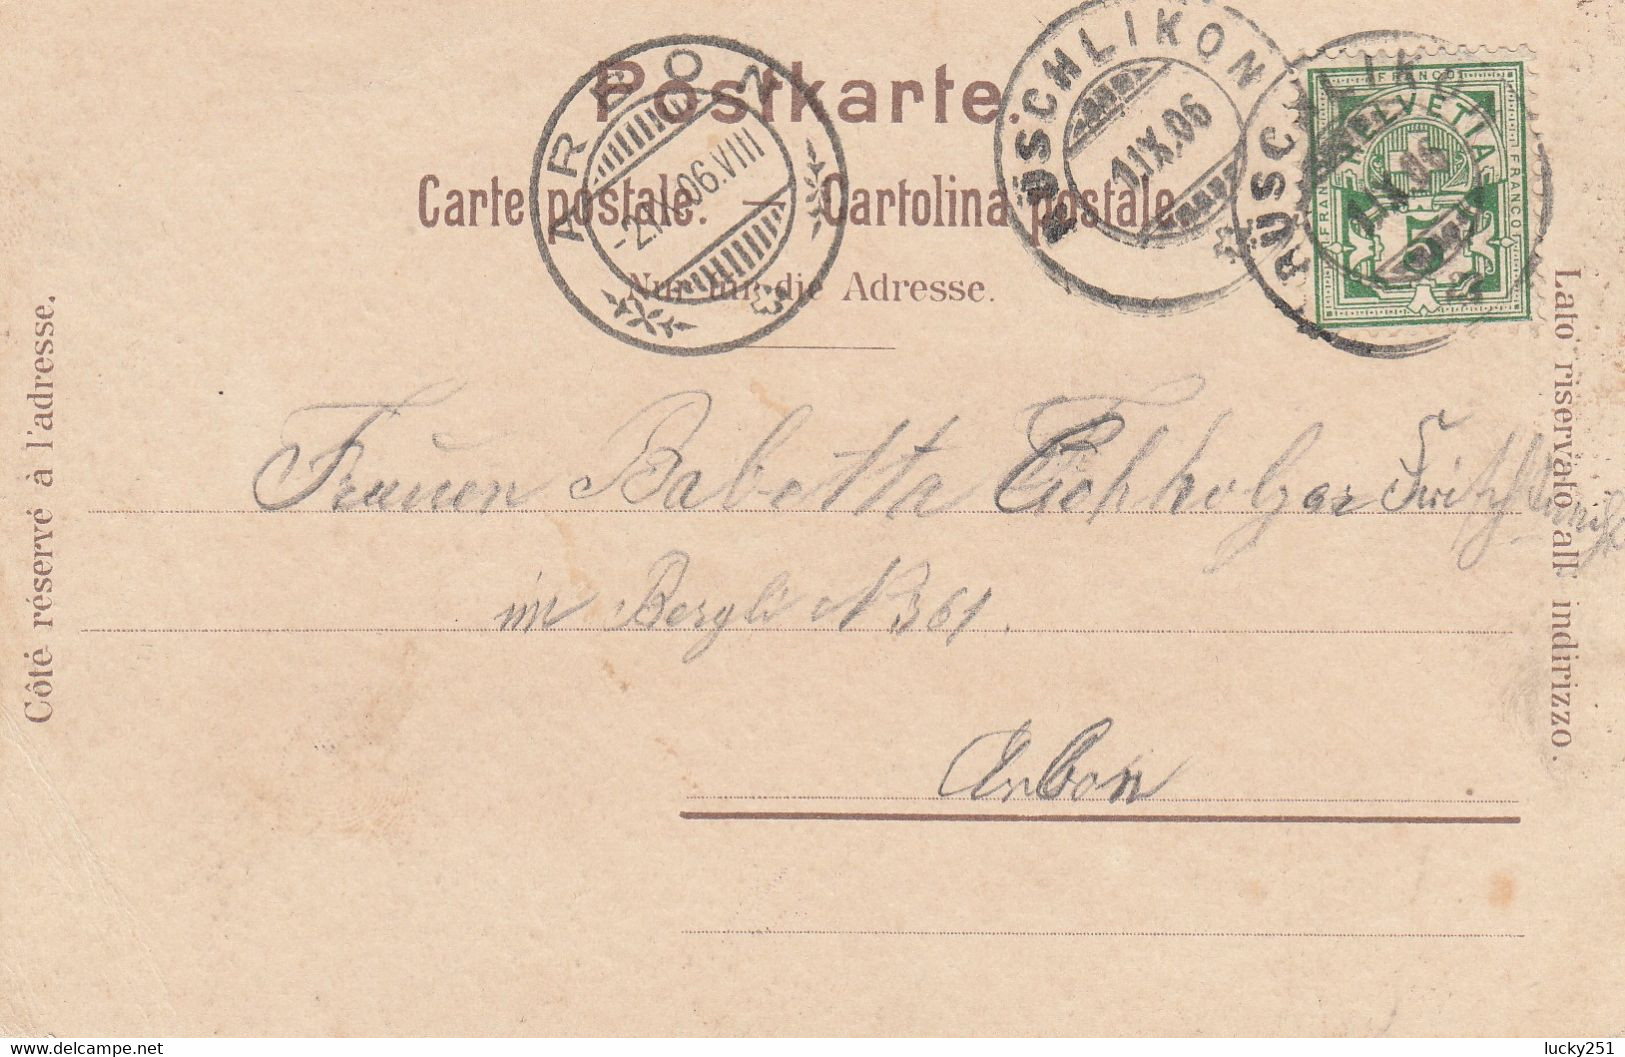 Postkarte.
Carte postale. — Cartolina postale
Nur für die Adresse.
ARBON
-2.IX.06.VIII
RÜSCHLIKON
1.IX.06
RÜSCHLIKON
1.IX.06
FRANCO
HELVETIA
FRANCO
FRANCO
5
Côté réservé à l'adresse.
Lato riservato all' indirizzo.
Frauen Babetta Eichholzer
im Bergli N 361.
Arbon
lucky251